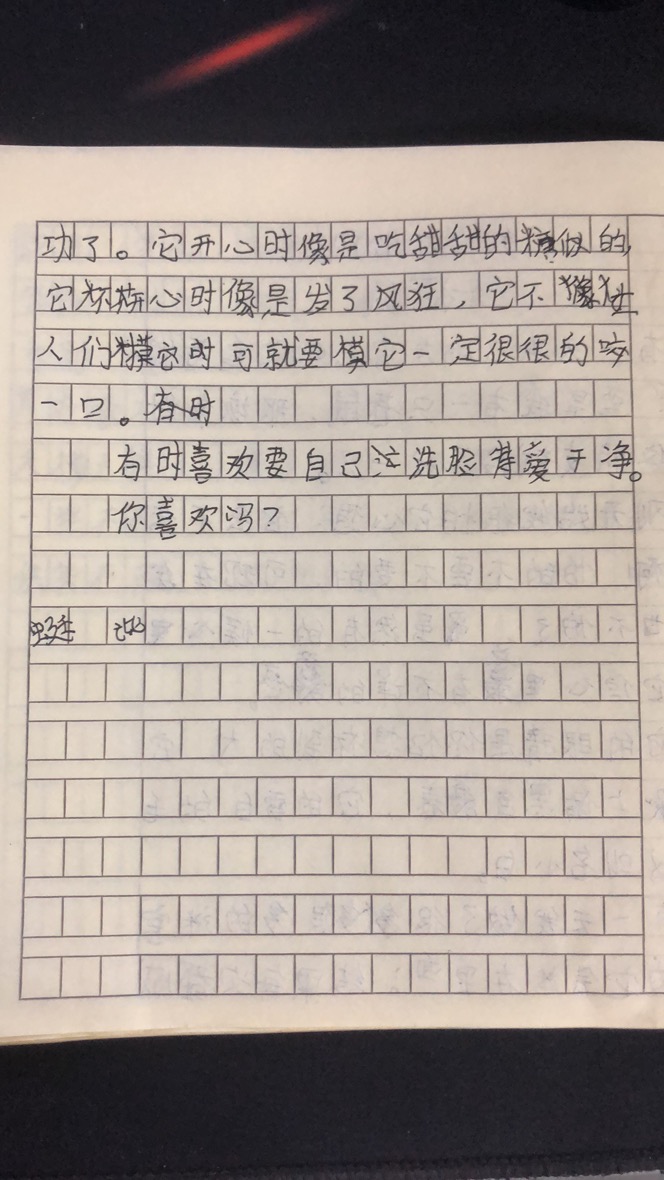 功了。它开心时像是吃甜甜的糖似的,
它坏心时像是发了风狂，它不像
人们模它时可就要模它一定很很的咬
一口。有时
有时喜欢要自己洗脸荐爱干净。
你喜欢吗？